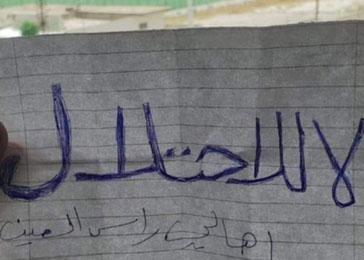 لا للاحتلال
اهالي راس العين